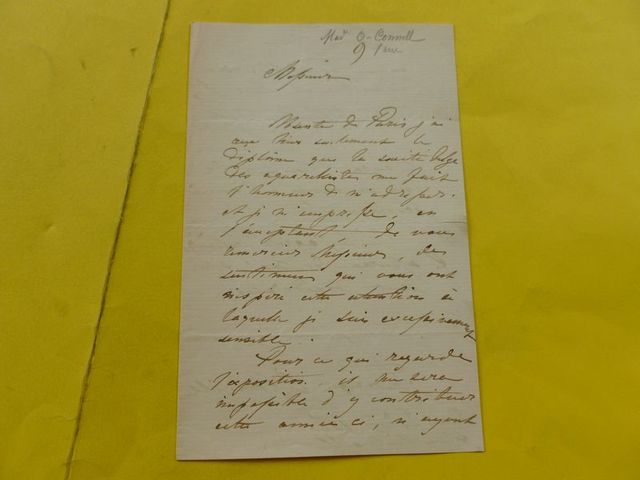 Mad O-Connell
9
Messieurs
Absente de Paris j'ai
reçu hier seulement le
diplôme que la société belge
des aquarellistes me fait
l'honneur de m'adresser.
et je m'empresse, en
l'acceptant de vous
remercier Messieurs, des
sentimens qui vous ont
inspiré cette attention à
laquelle je suis excessivement
sensible.
Pour ce qui regarde
l'exposition, il me sera
impossible d'y contribuer
cette année ci, n'ayant